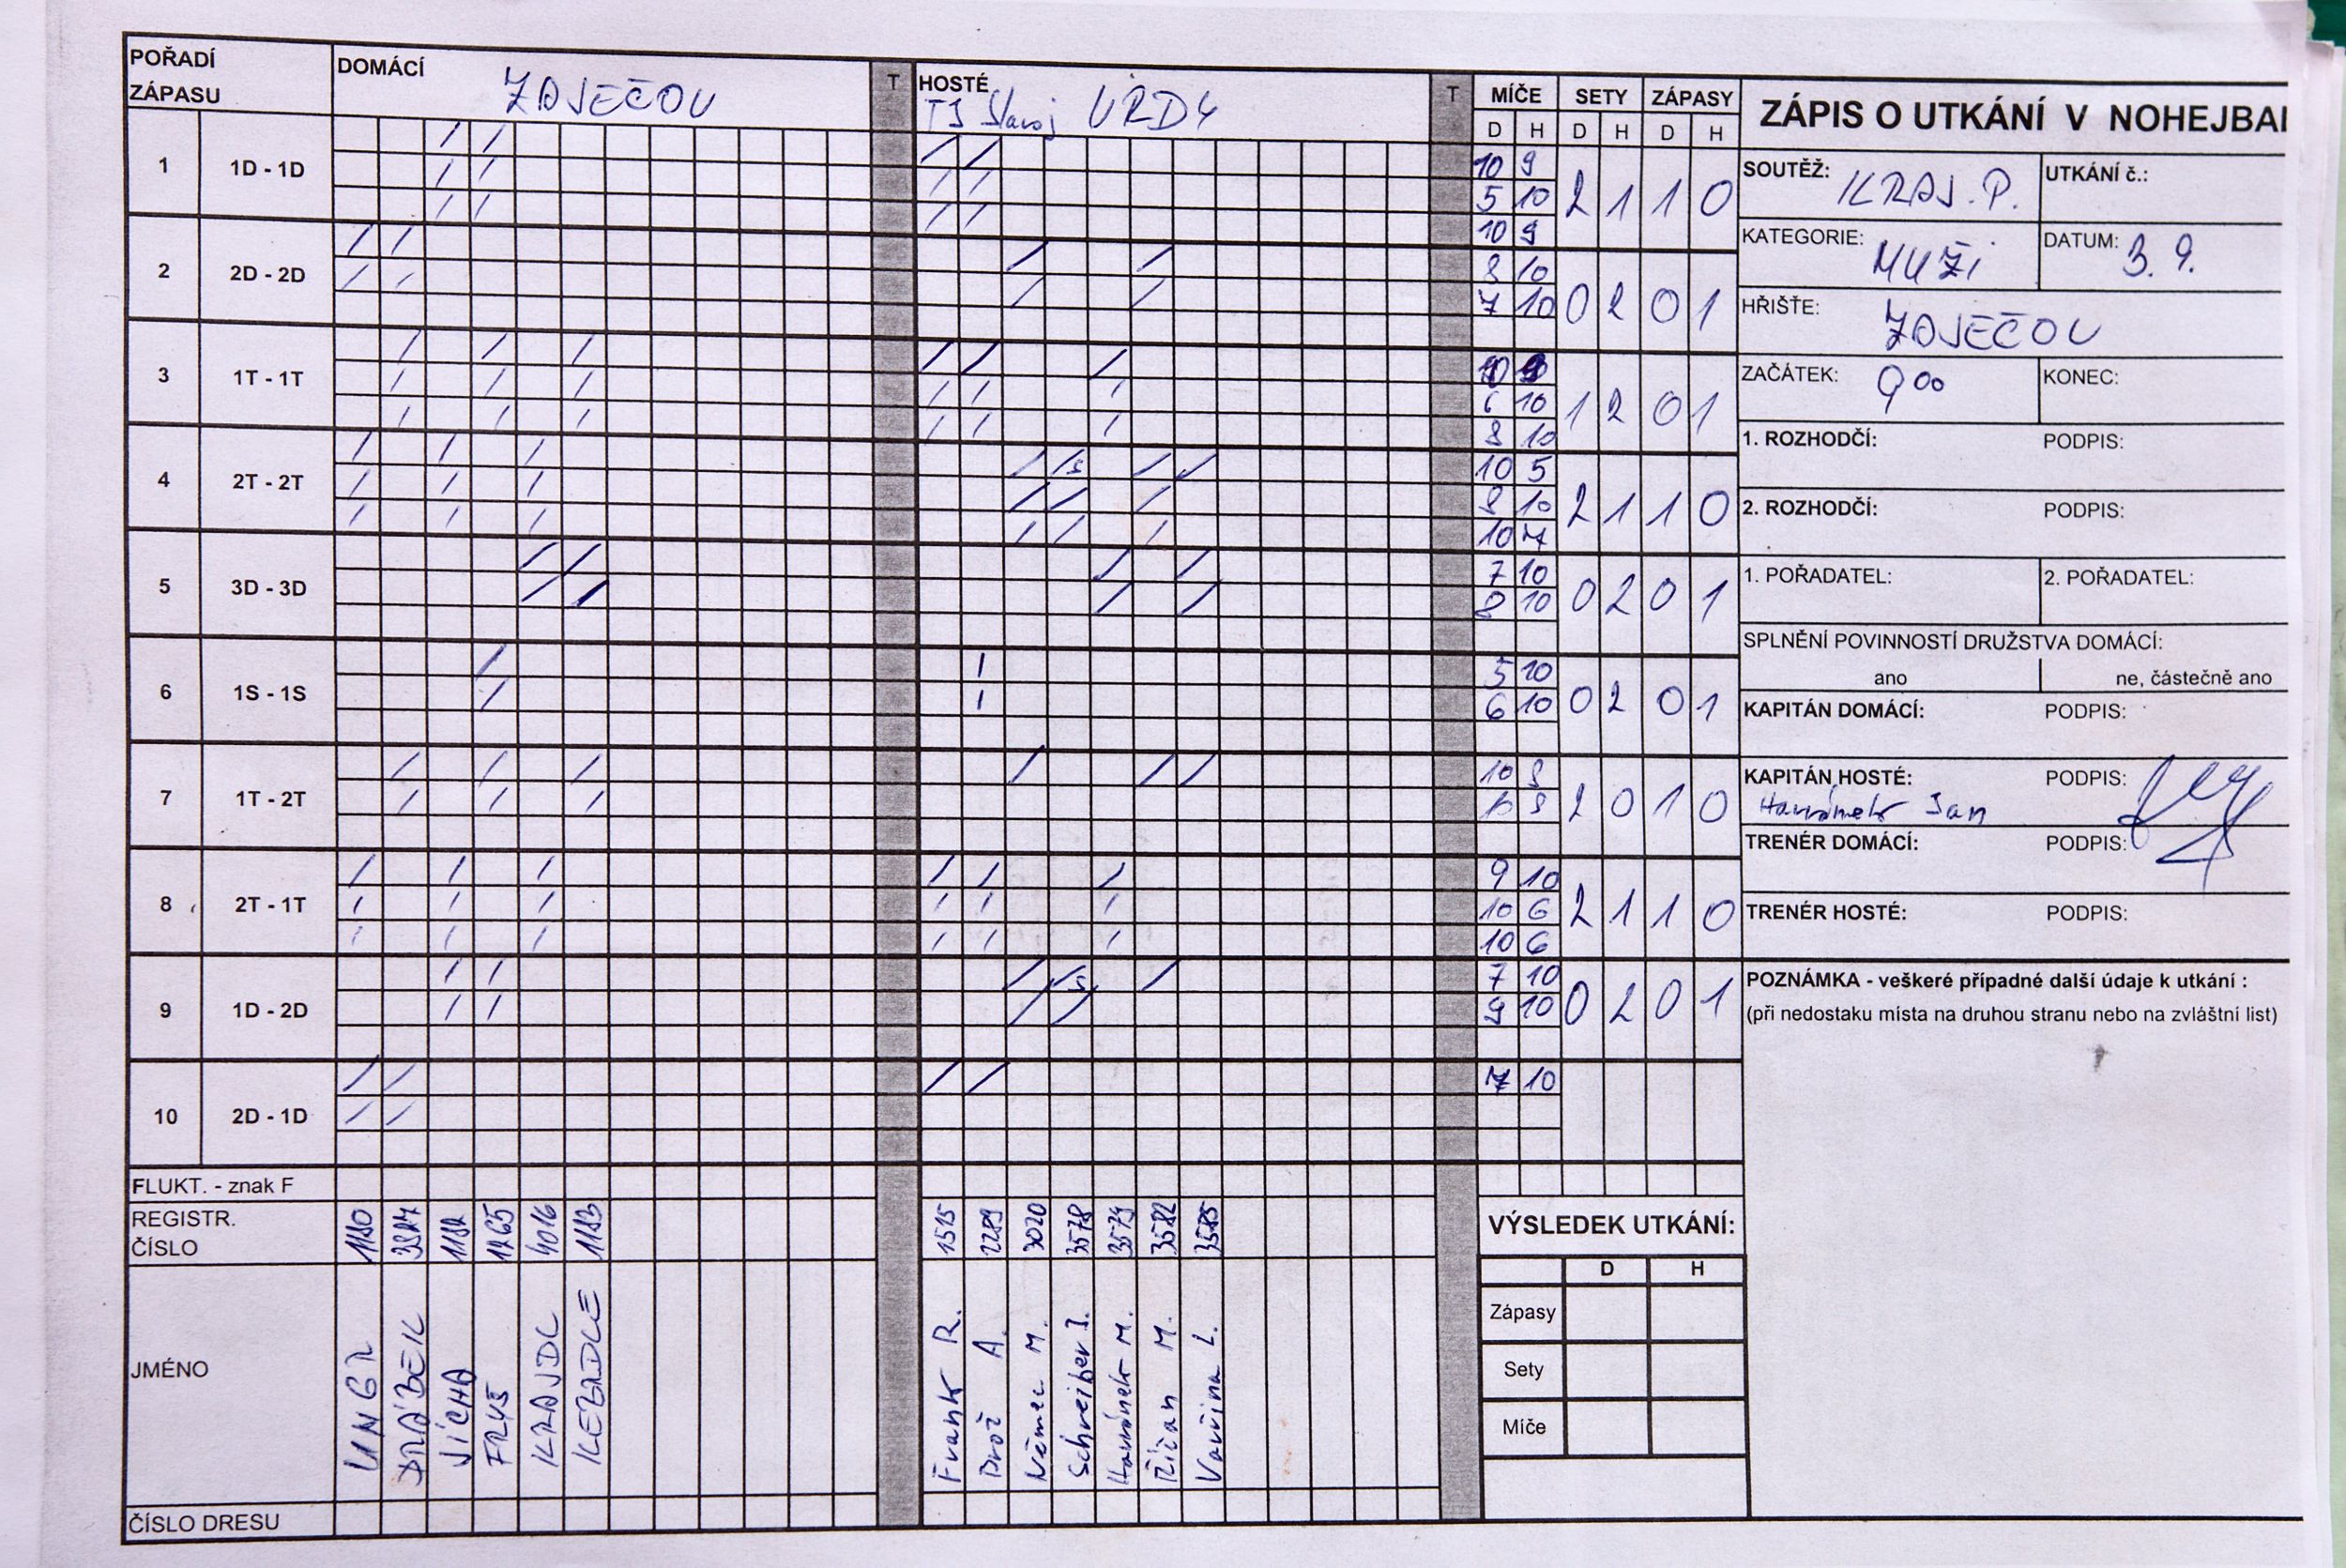 POŘADÍ
ZÁPASU
DOMÁCÍ
ZAJEČOV
T
HOSTÉ
TJ Slavoj
T
MÍČE
SETY
ZÁPASY
D H D H D H
ZÁPIS O UTKÁNÍ V NOHEJBAL
1 1D - 1D
10 9
5 10
10 9
2 1 1 0
2 2D - 2D
8 10
7 10
0 2 0 1
3 1T - 1T
6 10
8 10
1 2 0 1
4 2T - 2T
10 5
8 10
10 7
2 1 1 0
5 3D - 3D
7 10
8 10
0 2 0 1
6 1S - 1S
5 10
6 10
0 2 0 1
7 1T - 2T
2 0 1 0
8 2T - 1T
9 10
10 6
10 6
2 1 1 0
9 1D - 2D
7 10
9 10
0 2 0 1
10 2D - 1D
7 10
FLUKT. - znak F
REGISTR.
ČÍSLO
1180
1182
1265
4016
1183
1515
2289
3020
3578
3579
3582
3585
JMÉNO
UNGR
DRÁBEK
JÍCHA
FRYŠ
KRAJDL
KEBRDLE
Frank R.
Brož A.
Němec M.
Schreiber J.
Havránek M.
Říčan M.
Vavřina L.
ČÍSLO DRESU
SOUTĚŽ: KRAJ. P.
UTKÁNÍ č.:
KATEGORIE: MUŽI
DATUM: 3. 9.
HŘIŠTĚ: ZAJEČOV
ZAČÁTEK: 9 00
KONEC:
1. ROZHODČÍ: PODPIS:
2. ROZHODČÍ: PODPIS:
1. POŘADATEL: 2. POŘADATEL:
SPLNĚNÍ POVINNOSTÍ DRUŽSTVA DOMÁCÍ:
ano ne, částečně ano
KAPITÁN DOMÁCÍ: PODPIS:
KAPITÁN HOSTÉ: PODPIS:
Havránek Jan
TRENÉR DOMÁCÍ: PODPIS:
TRENÉR HOSTÉ: PODPIS:
POZNÁMKA - veškeré případné další údaje k utkání :
(při nedostaku místa na druhou stranu nebo na zvláštní list)
VÝSLEDEK UTKÁNÍ:
D H
Zápasy
Sety
Míče